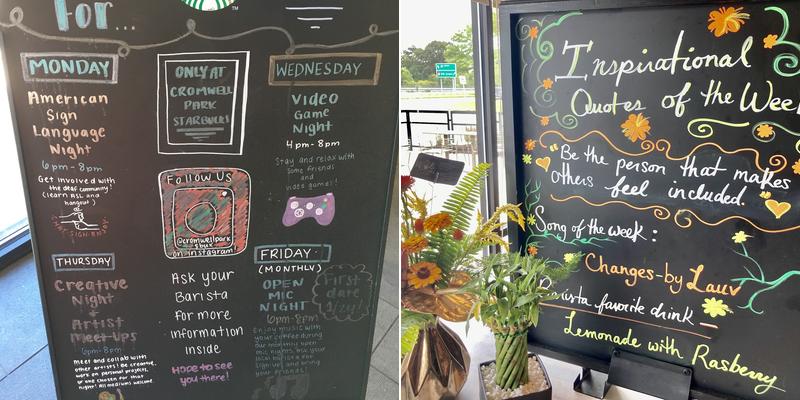 For...
TM
MONDAY
American
Sign
Language
Night
6pm-8pm
Get involved with
the deaf community!
(learn ASL and
hangout)
THURSDAY
Creative
Night
+
Artist
Meet-Ups
6pm-8pm
Meet and collab with
other artists! Be creative,
work on personal projects,
or one chosen for that
night! All mediums welcome.
ONLY AT
CROMWELL
PARK
STARBUCKS
FOLLOW US
@cromwellpark
sbux
on instagram!
Ask your
Barista
for more
information
inside
Hope to see
you there!
WEDNESDAY
Video
Game
Night
4pm-8pm
Stay and relax with
some friends
and
video games!
FRIDAY
(MONTHLY)
OPEN
MIC
NIGHT
6pm-8pm
First
date
Enjoy music with
your coffee during
our monthly open
mic nights. Ask your
local barista for
sign-ups and bring
your friends!
Inspirational
Quotes of the Week
Be the person that makes
others feel included.
Song of the week:
Changes-by Lauv
Barista favorite drink —
Lemonade with Rasberry